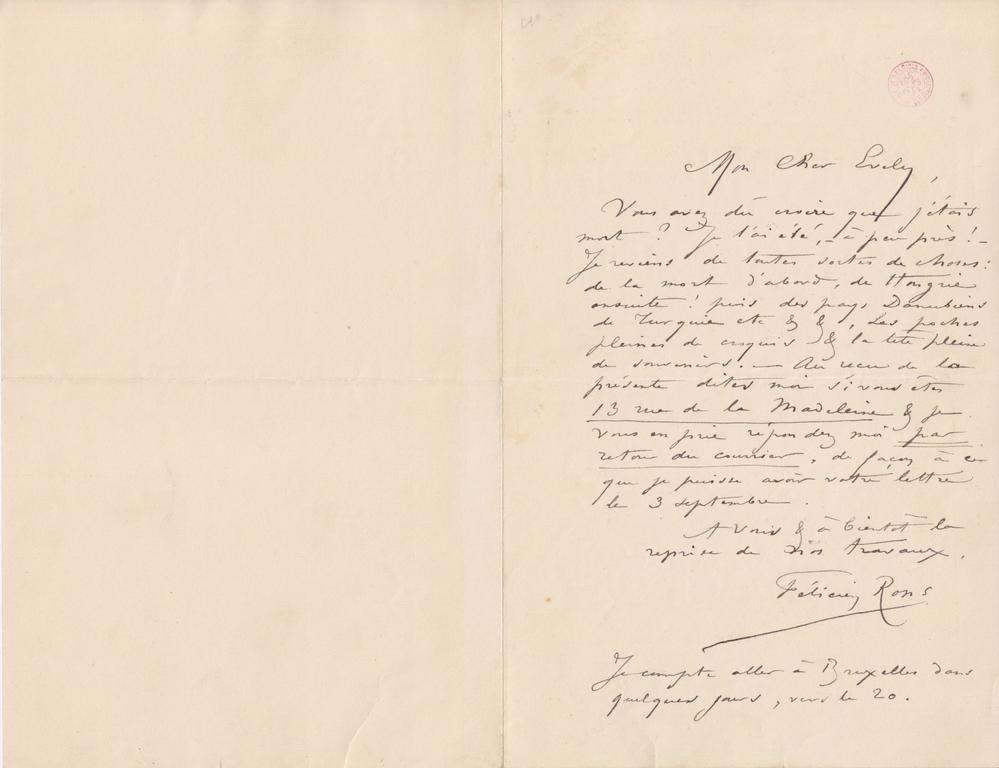 Mon Cher Evely,
Vous avez dû croire que j'étais
mort ? Je l'ai été, – à peu près ! –
Je reviens de toutes sortes de choses :
de la mort d'abord, de Hongrie
ensuite ! puis des pays Danubiens
de Turquie etc & & , Les poches
pleines de croquis & la tête pleine
de souvenirs. — Au reçu de la
présente dites moi si vous êtes
13 rue de la Madeleine & je
vous en prie répondez moi par
retour du courrier, de façon à ce
que je puisse avoir votre lettre
le 3 septembre.
A Vous & à bientôt la
reprise de nos travaux.
Félicien Rops
Je compte aller à Bruxelles dans
quelques jours, vers le 20.